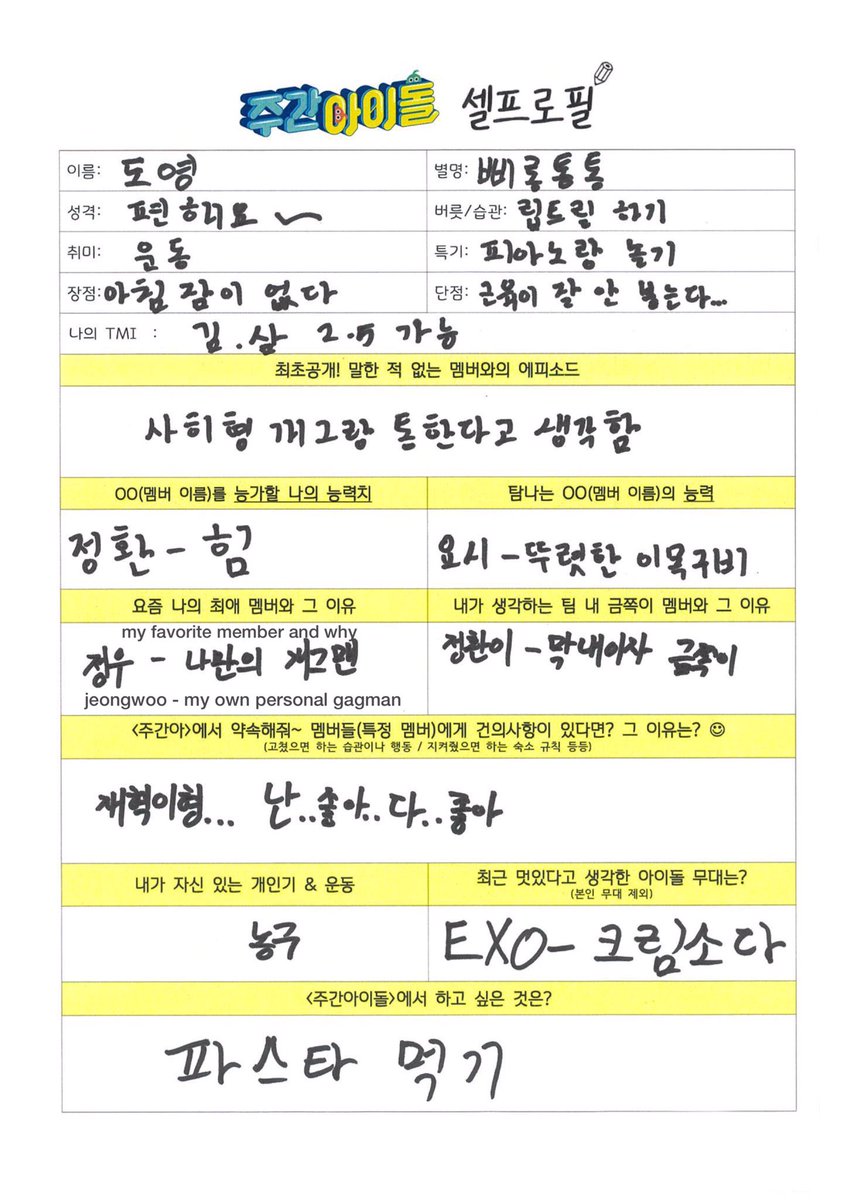 주간아이돌 셀프로필
이름: 도영 별명: 삐롱통통
성격: 편해요~ 버릇/습관: 립트릴 하기
취미: 운동 특기: 피아노랑 놀기
장점: 아침잠이 없다 단점: 근육이 잘 안 붙는다...
나의 TMI : 김.삼 2.5 가능
최초공개! 말한 적 없는 멤버와의 에피소드
사히형 개그랑 톤한다고 생각함
OO(멤버 이름)를 능가할 나의 능력치 탐나는 OO(멤버 이름)의 능력
정환 - 힘 요시 - 뚜렷한 이목구비
요즘 나의 최애 멤버와 그 이유 내가 생각하는 팀 내 금쪽이 멤버와 그 이유
my favorite member and why
정우 - 나만의 개그맨 정환이 - 막내이자 금쪽이
jeongwoo - my own personal gagman
<주간아>에서 약속해줘~ 멤버들(특정 멤버)에게 건의사항이 있다면? 그 이유는? ☺
(고쳤으면 하는 습관이나 행동 / 지켜줬으면 하는 숙소 규칙 등등)
재혁이형... 난..좋아..다..좋아
내가 자신 있는 개인기 & 운동 최근 멋있다고 생각한 아이돌 무대는?
(본인 무대 제외)
농구 EXO- 크림소다
<주간아이돌>에서 하고 싶은 것은?
파스타 먹기